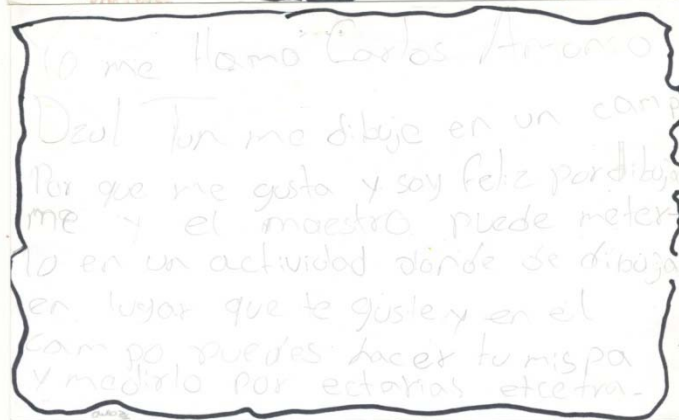 Yo me llamo Carlos
Dzul Tun me dibuje en un camp
Por que me gusta y soy feliz por dibuja
me y el maestro puede meter-
lo en un actividad donde se dibuja
en lugar que te guste y en el
campo puedes hacer tu
y medirlo por ectarias etcetra-